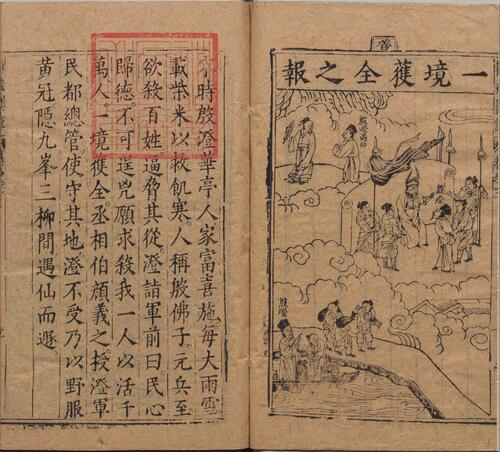 善
一境獲全之報
殷澄遇仙
殷澄
殷澄
宋時殷澄華亭人家富喜施每大雨雪
載柴米以救飢寒。人稱殷佛子。元兵至
欲殺百姓。逼脅其從。澄詣軍前曰民心
歸德不可逞兇願求殺我一人以活千
萬人。一境獲全。丞相伯顏義之。授澄軍
民都總管使守其地。澄不受乃以野服
黃冠隱九峯三柳間遇仙而遯。